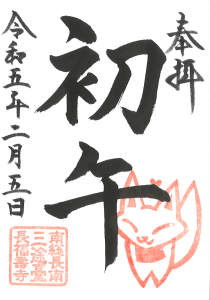 奉拝
初午
令和五年二月五日
南総長南
三途河頭
長福壽寺